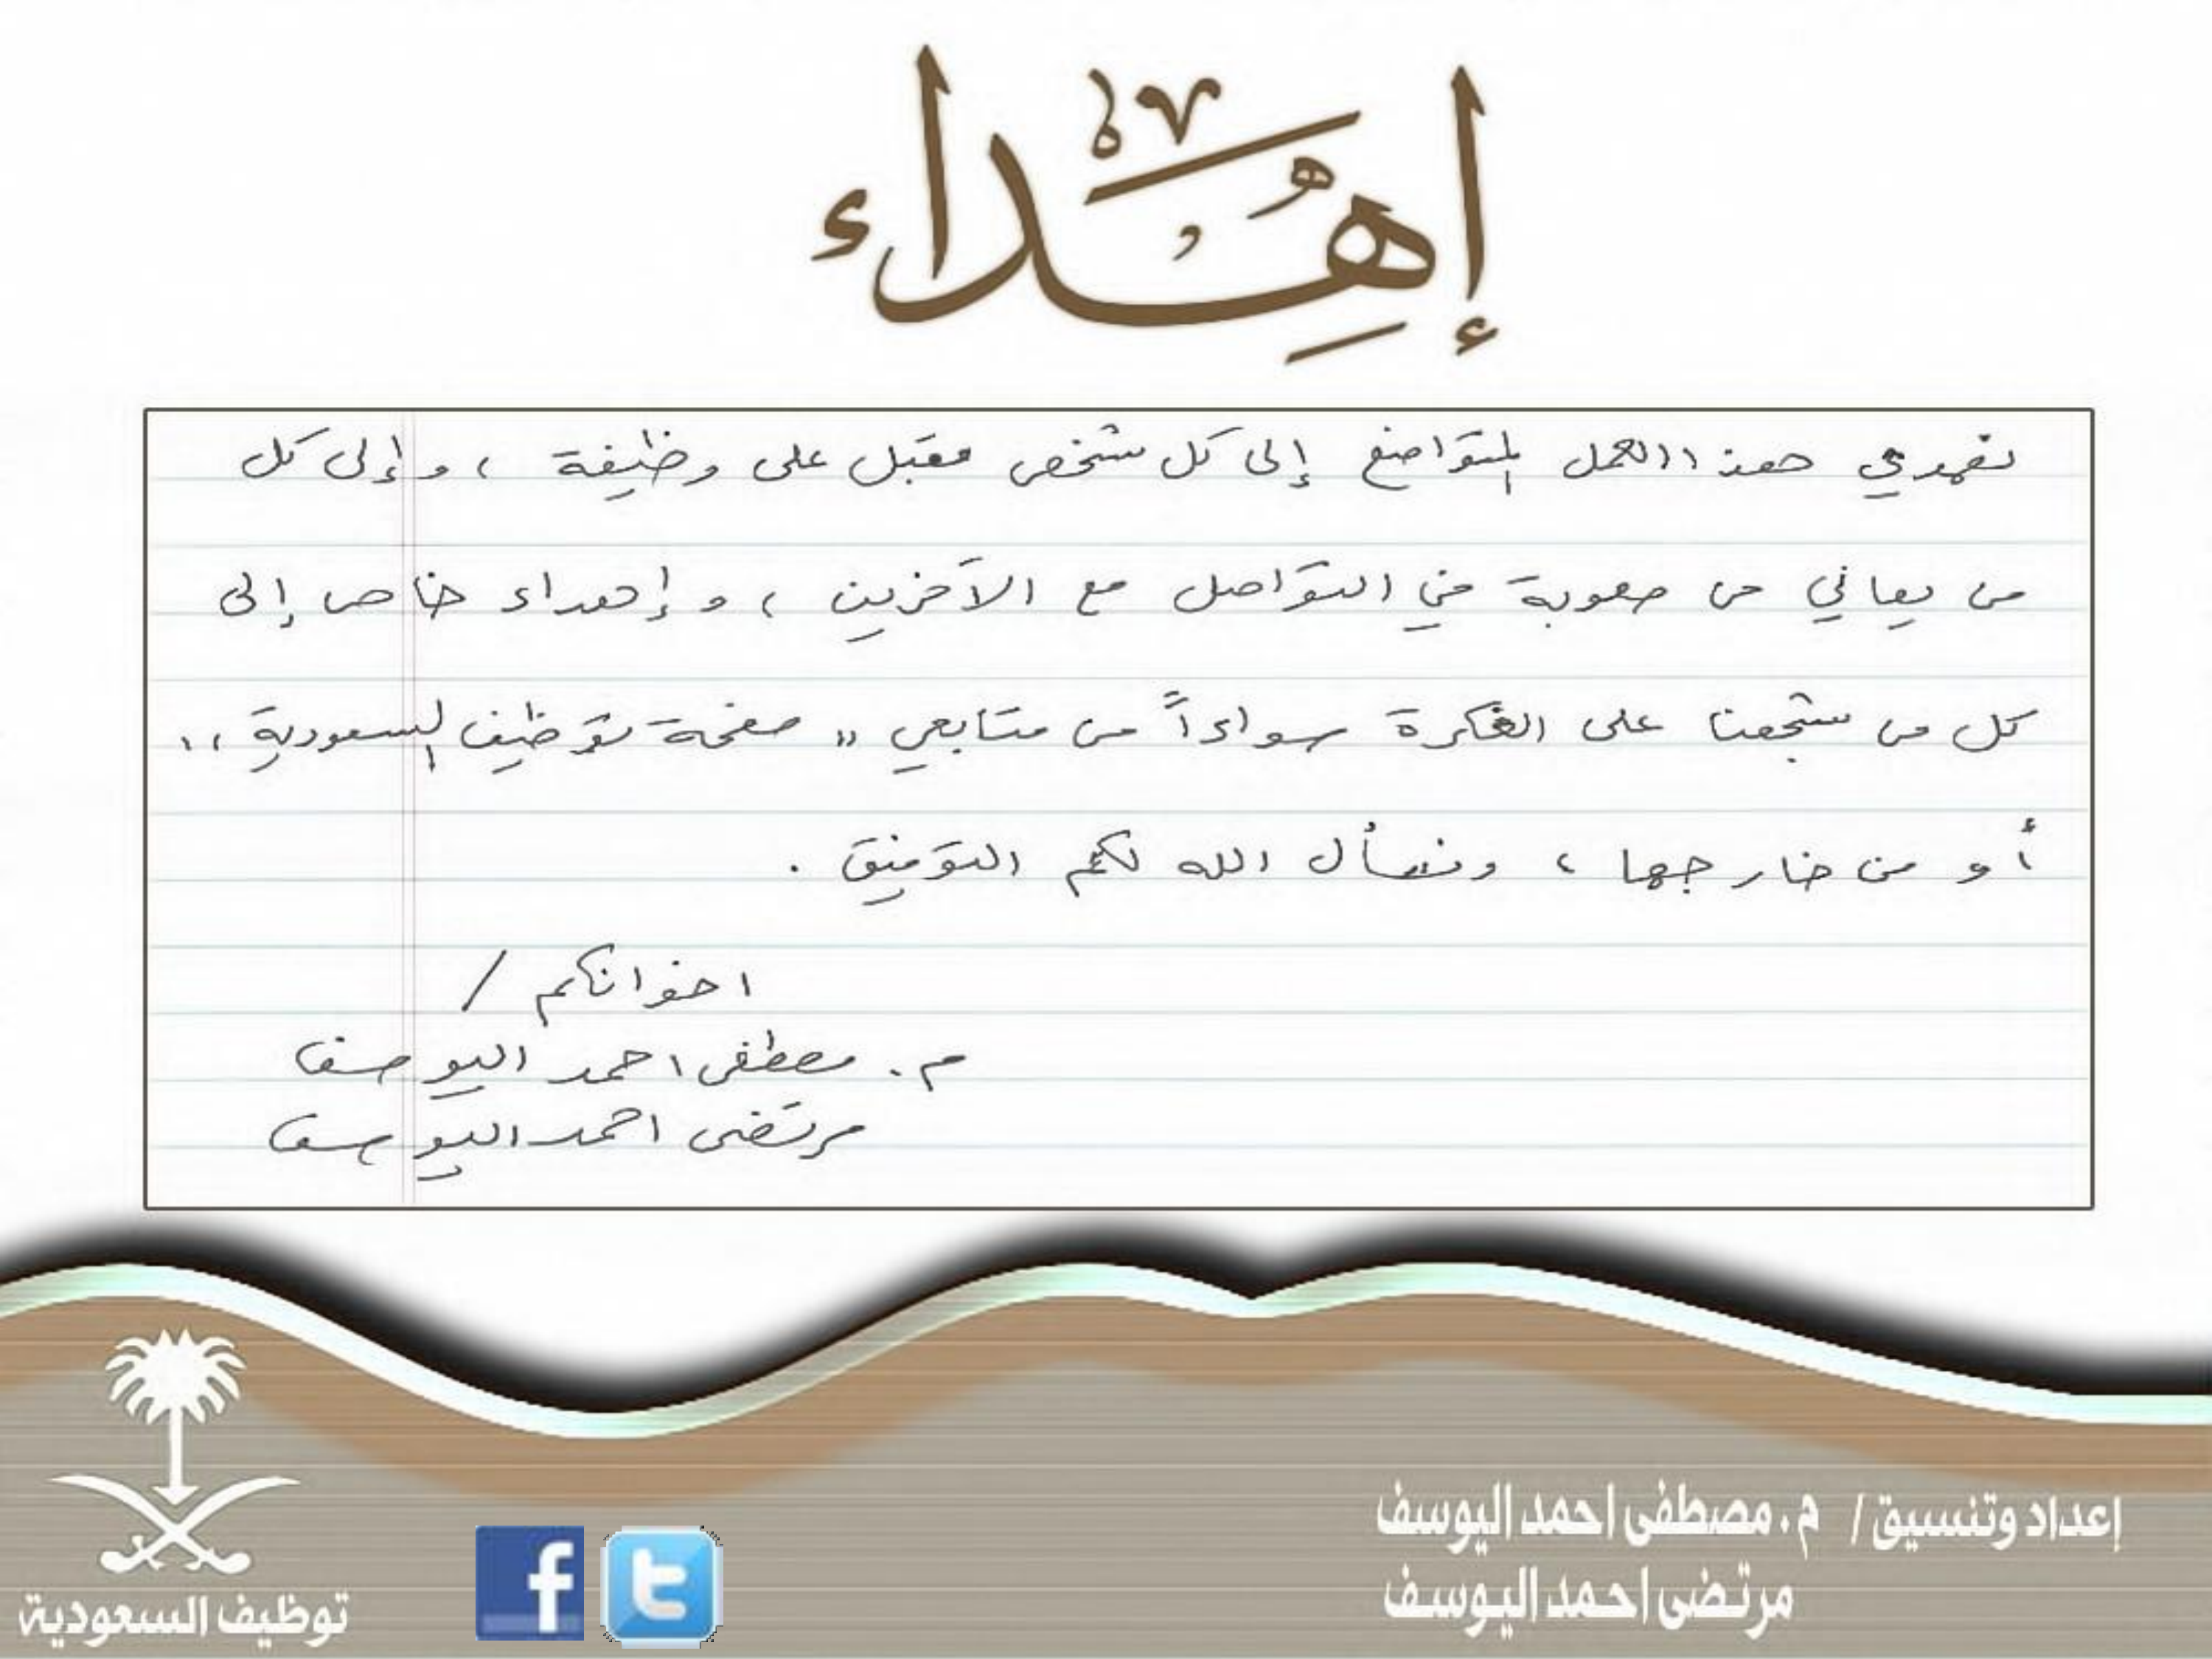 إهداء
نهدي هذا العمل المتواضع إلى كل شخص مقبل على وظيفة ، و إلى كل
من يعاني من صعوبة في التواصل مع الآخرين ، و إهداء خاص إلى
كل من شجعنا على الفكرة سواءاً من متابعي " صفحة توظيف السعودية "
أو من خارجها ، ونسأل الله لكم التوفيق .
اخوانكم /
م . مصطفى احمد اليوسف
مرتضى احمد اليوسف
إعداد وتنسيق / م . مصطفى احمد اليوسف
مرتضى احمد اليوسف
توظيف السعودية
f t